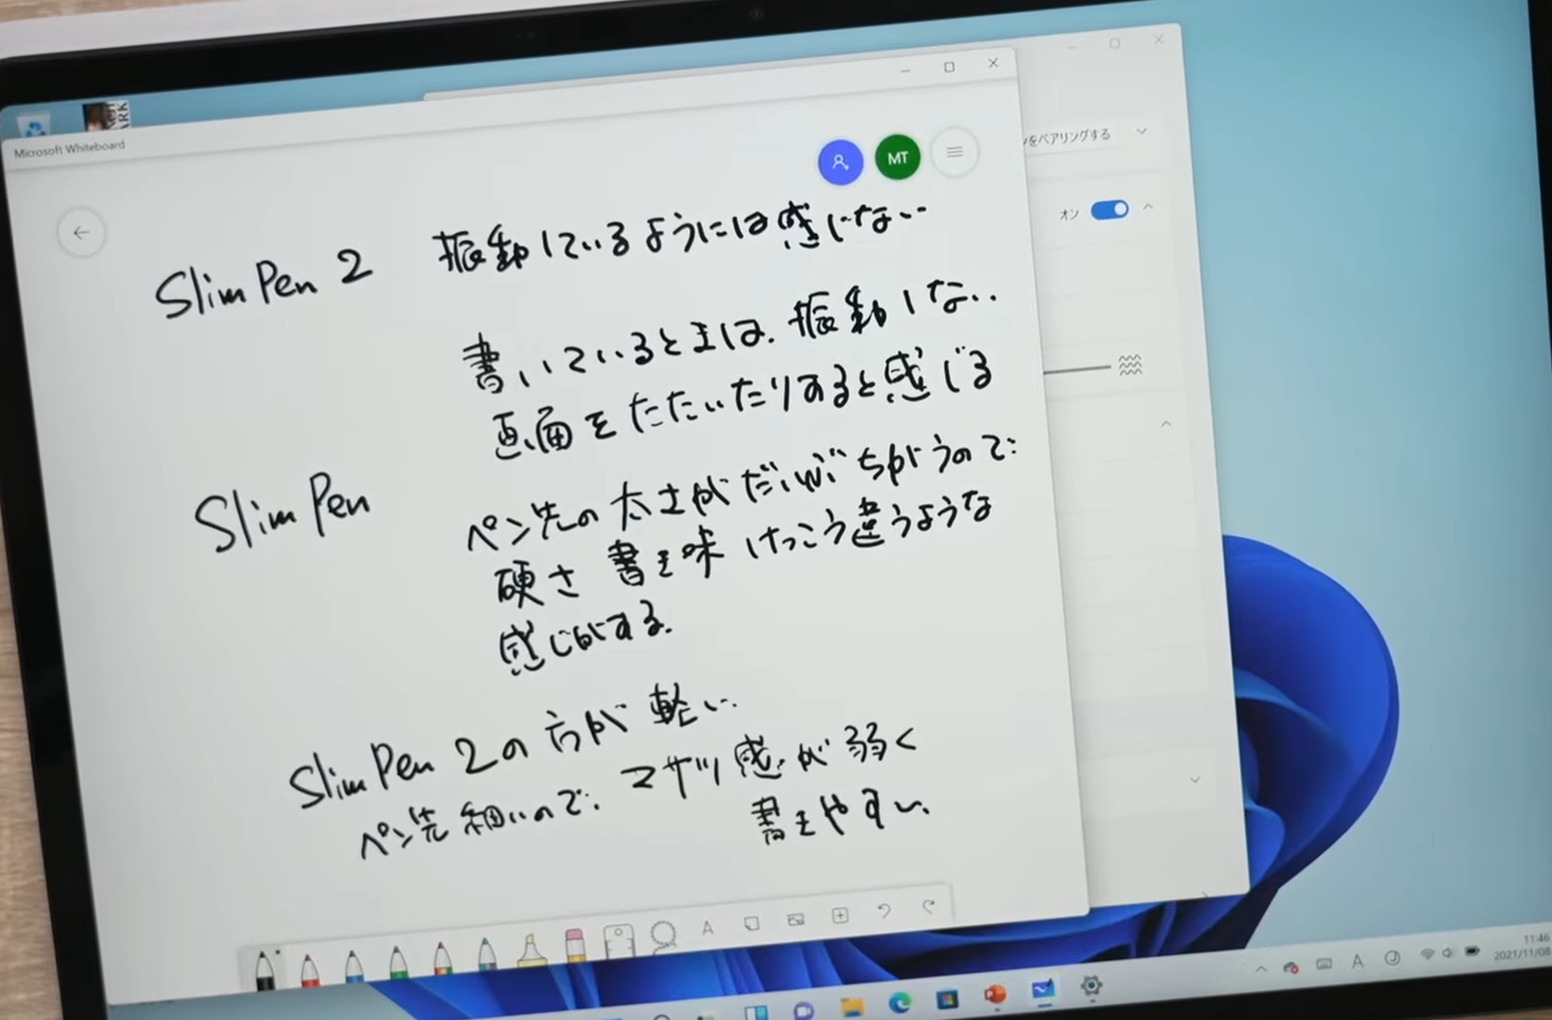 Microsoft Whiteboard
MT
ンをペアリングする
オン
Slim Pen 2 振動しているようには感じない
書いているときは、振動しない
画面をたたいたりすると感じる
Slim Pen ペン先の太さがだいぶちがうので
硬さ 書き味 けっこう違うような
感じがする。
Slim Pen 2の方が軽い
ペン先細いので、マサツ感が弱く
書きやすい
A
A
11:46
2021/11/08